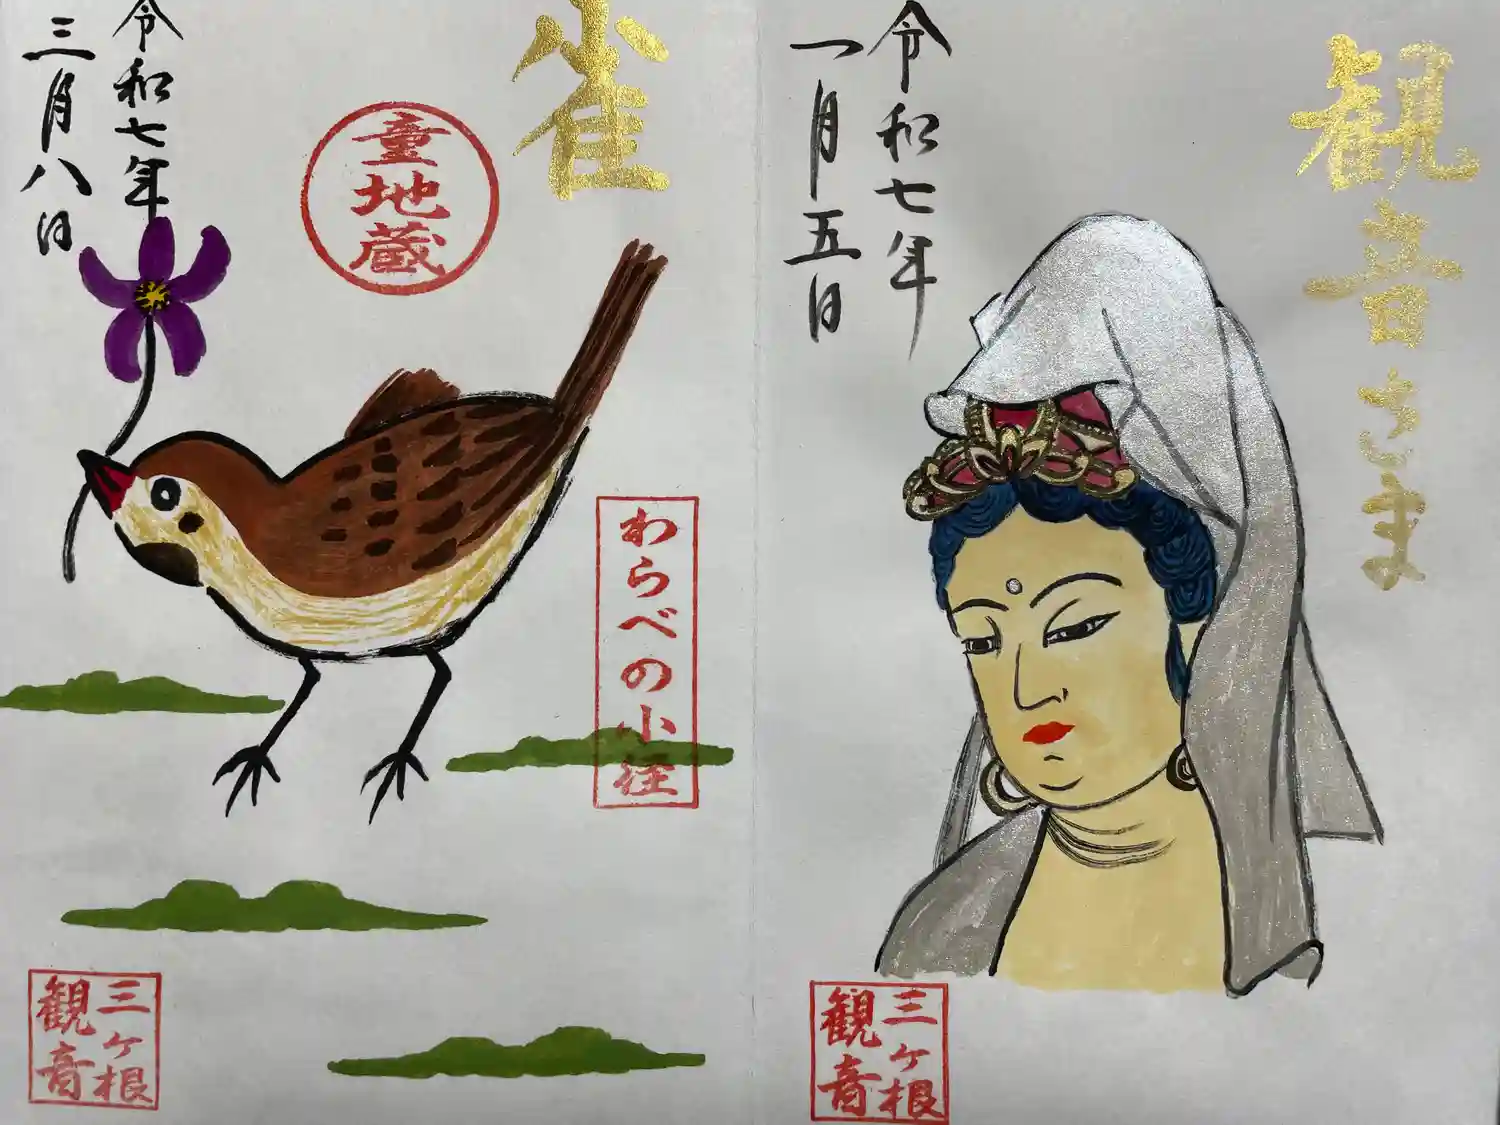 雀
童地蔵
わらべの小径
令和七年
三月八日
三ヶ根
観音
観音さま
令和七年
一月五日
三ヶ根
観音